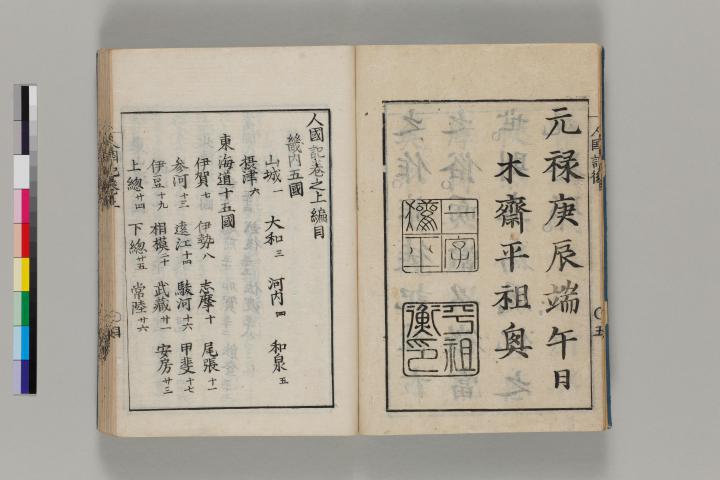 元禄庚辰端午日
木齋平祖奥
人國記巻之上編目
畿内五國
山城一 大和三 河内四 和泉五
摂津六
東海道十五國
伊賀七 伊勢八 志摩十 尾張十一
参河十三 遠江十四 駿河十六 甲斐十七
伊豆十九 相模二十 武蔵廿一 安房廿三
上總廿四 下總廿五 常陸廿六